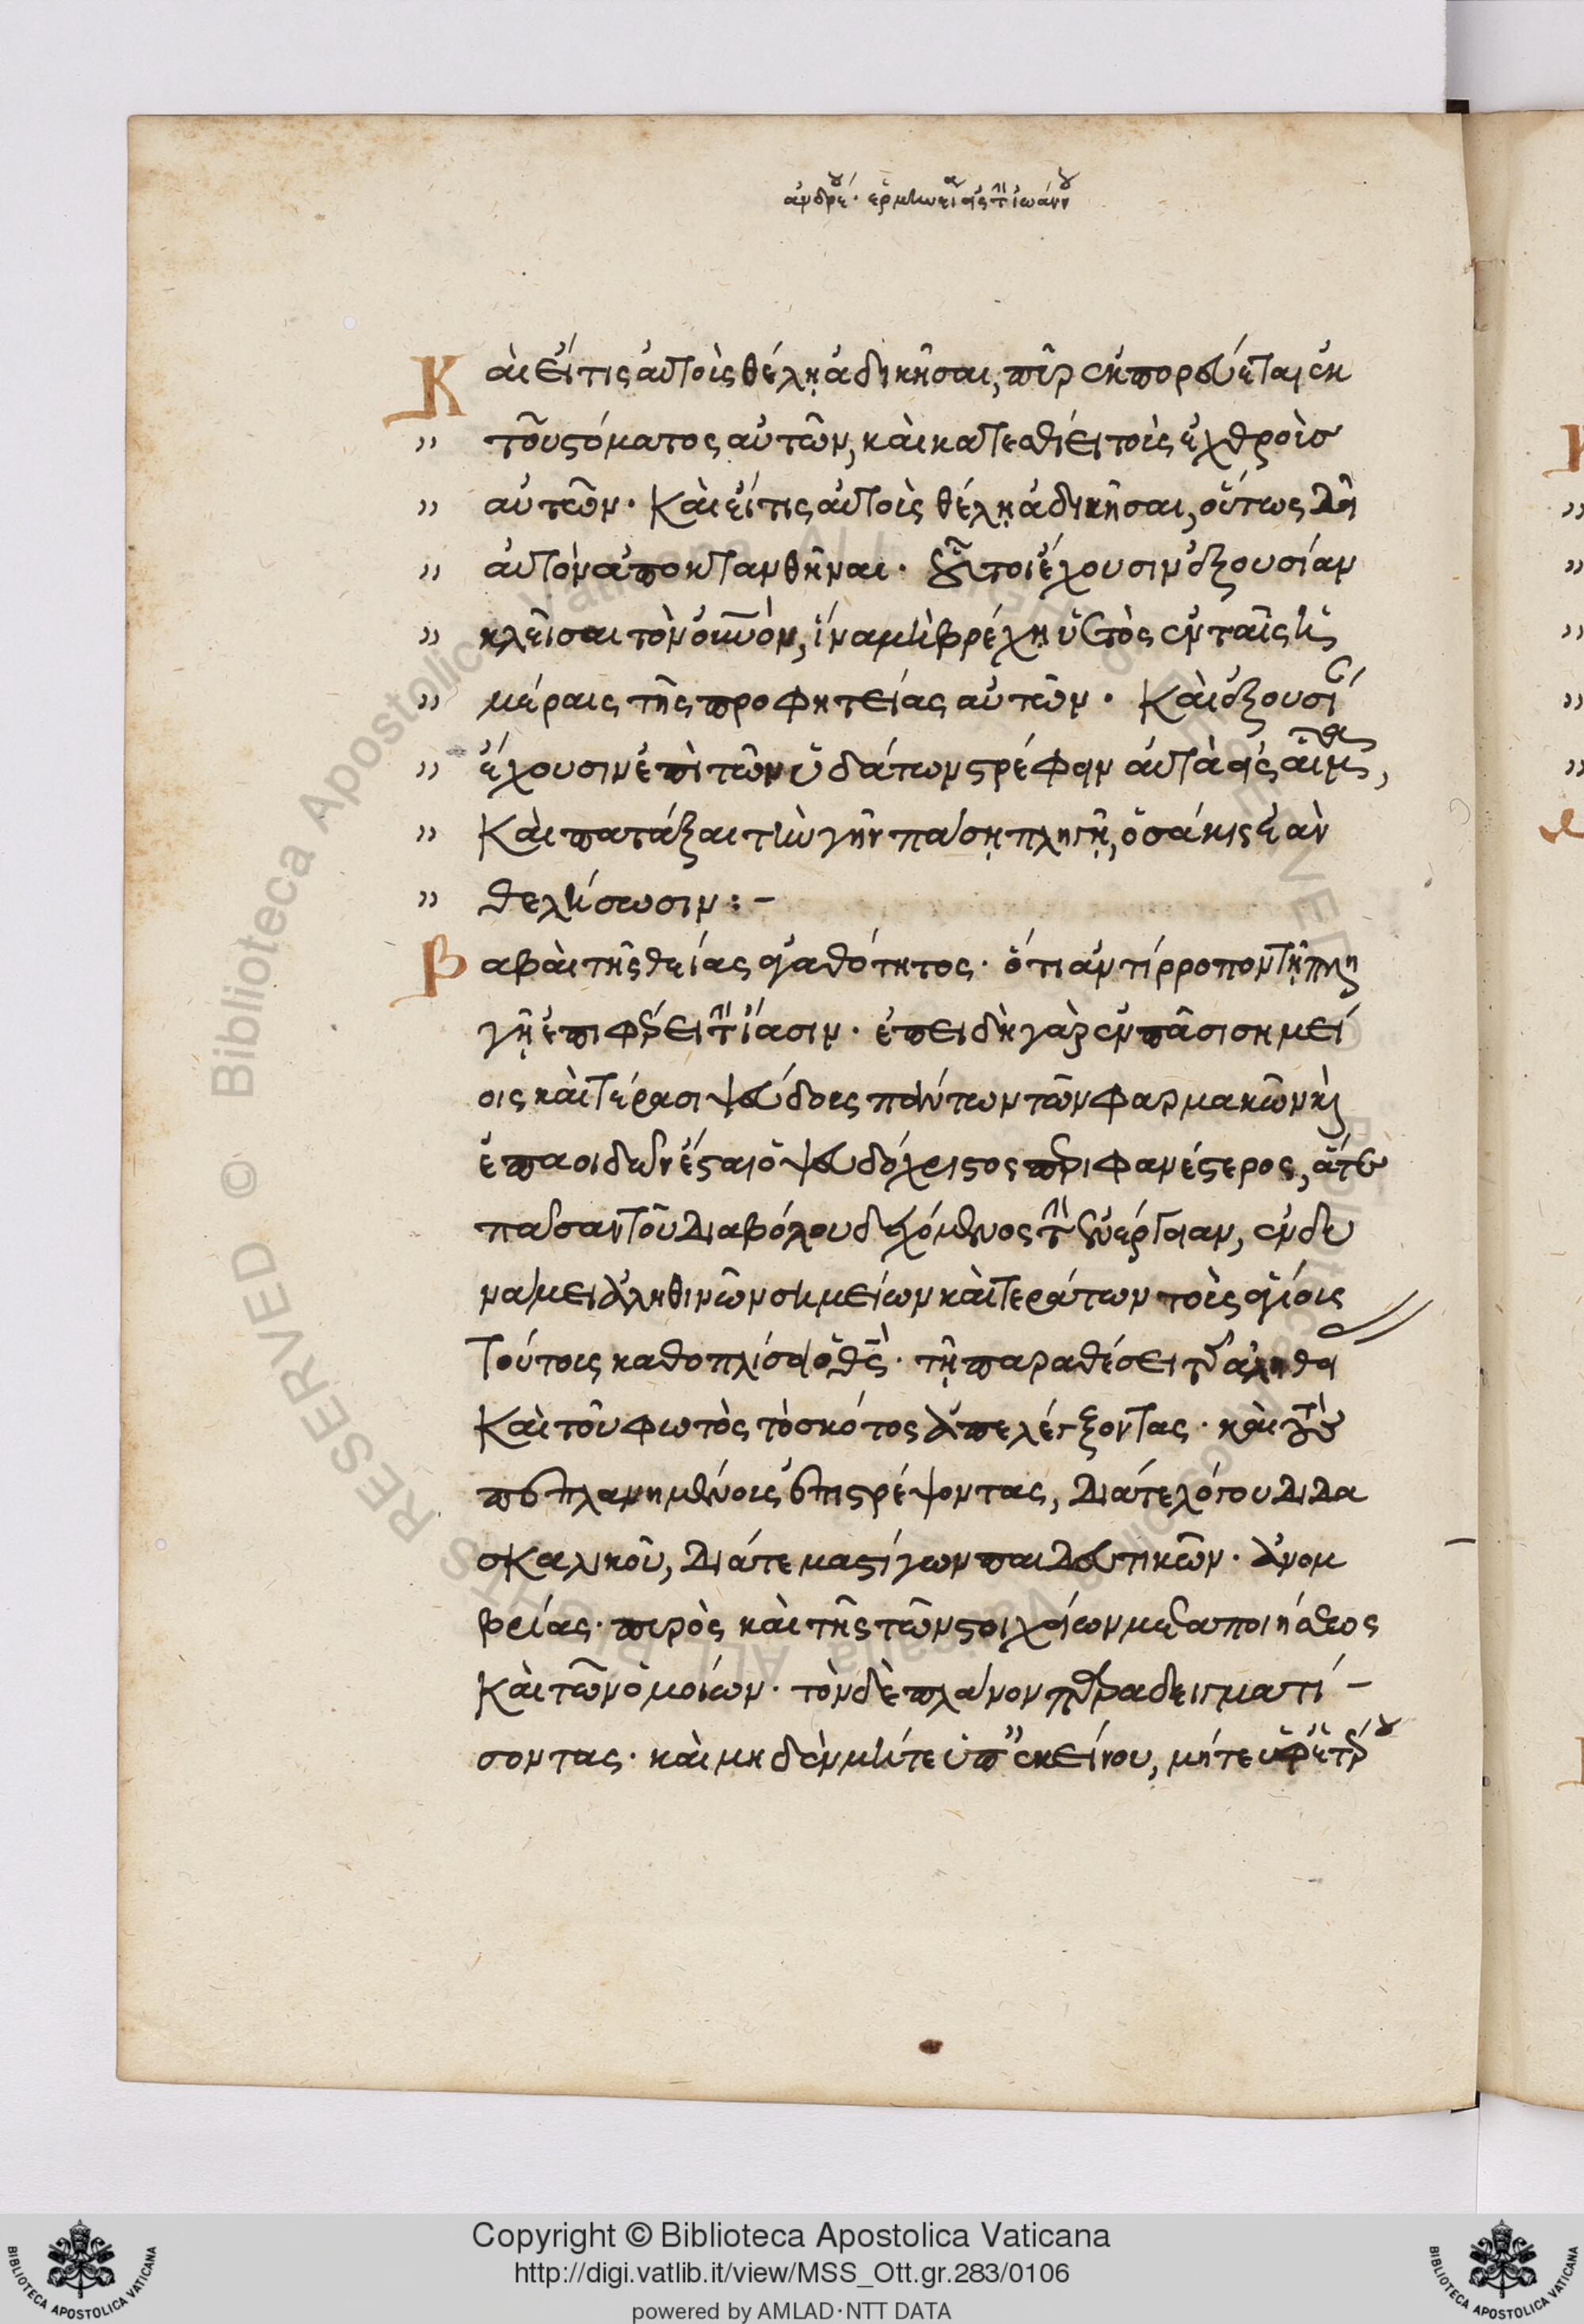 ἀνδρέου ἑρμηνεία εἰς τὴν ἰωάννου
Καὶ εἴ τις αὐτοὺς θέλῃ ἀδικῆσαι, πῦρ ἐκπορεύεται ἐκ
„ τοῦ στόματος αὐτῶν, καὶ κατεσθίει τοὺς ἐχθροὺς
„ αὐτῶν· Καὶ εἴ τις αὐτοὺς θέλῃ ἀδικῆσαι, οὕτως δεῖ
„ αὐτὸν ἀποκτανθῆναι· οὗτοι ἔχουσιν ἐξουσίαν
„ κλεῖσαι τὸν οὐρανόν, ἵνα μὴ βρέχῃ ὑετὸς ἐν ταῖς ἡ
„ μέραις τῆς προφητείας αὐτῶν· Καὶ ἐξουσίαν
„ ἔχουσιν ἐπὶ τῶν ὑδάτων στρέφειν αὐτὰ εἰς αἷμα,
„ Καὶ πατάξαι τὴν γῆν πάσῃ πληγῇ, ὁσάκις ἐὰν
„ θελήσωσιν:–
Βαβαὶ τῆς θείας ἀγαθότητος· ὅτι ἀντίρροπον τῇ πλη
γῇ ἐπιφέρει τὴν ἴασιν· ἐπειδὴ γὰρ ἐν πᾶσι σημεί
οις καὶ τέρασι ψεύδους πάντων τῶν φαρμακῶν καὶ
ἐπαοιδῶν ἔσται ὁ ψευδόχριστος περιφανέστερος, ἅτε
πᾶσαν τοῦ διαβόλου δεχόμενος τὴν ἐνέργειαν, ἐν δυ
νάμει ἀληθινῶν σημείων καὶ τεράτων τοὺς ἁγίους
τούτους καθοπλίσει ὁ θεός· τῇ παραθέσει τῆς ἀληθεί
Καὶ τοῦ φωτὸς τὸ σκότος ἀπελέγξοντας· καὶ τοὺς
πεπλανημένους ἐπιστρέψοντας, διά τε λόγου διδα
σκαλικοῦ, διά τε μαστίγων παιδευτικῶν· ἀνομ
βρίας· πυρὸς καὶ τῆς τῶν στοιχείων μεταποιήσεως
Καὶ τῶν ὁμοίων· τὸν δὲ πλάνον παραδειγματί–
σοντας· καὶ μηδὲν μήτε ὑπ' ἐκείνου, μήτε ὑφ' ἑτέρου
Copyright © Biblioteca Apostolica Vaticana
http://digi.vatlib.it/view/MSS_Ott.gr.283/0106
powered by AMLAD·NTT DATA
BIBLIOTECA APOSTOLICA VATICANA
BIBLIOTECA APOSTOLICA VATICANA